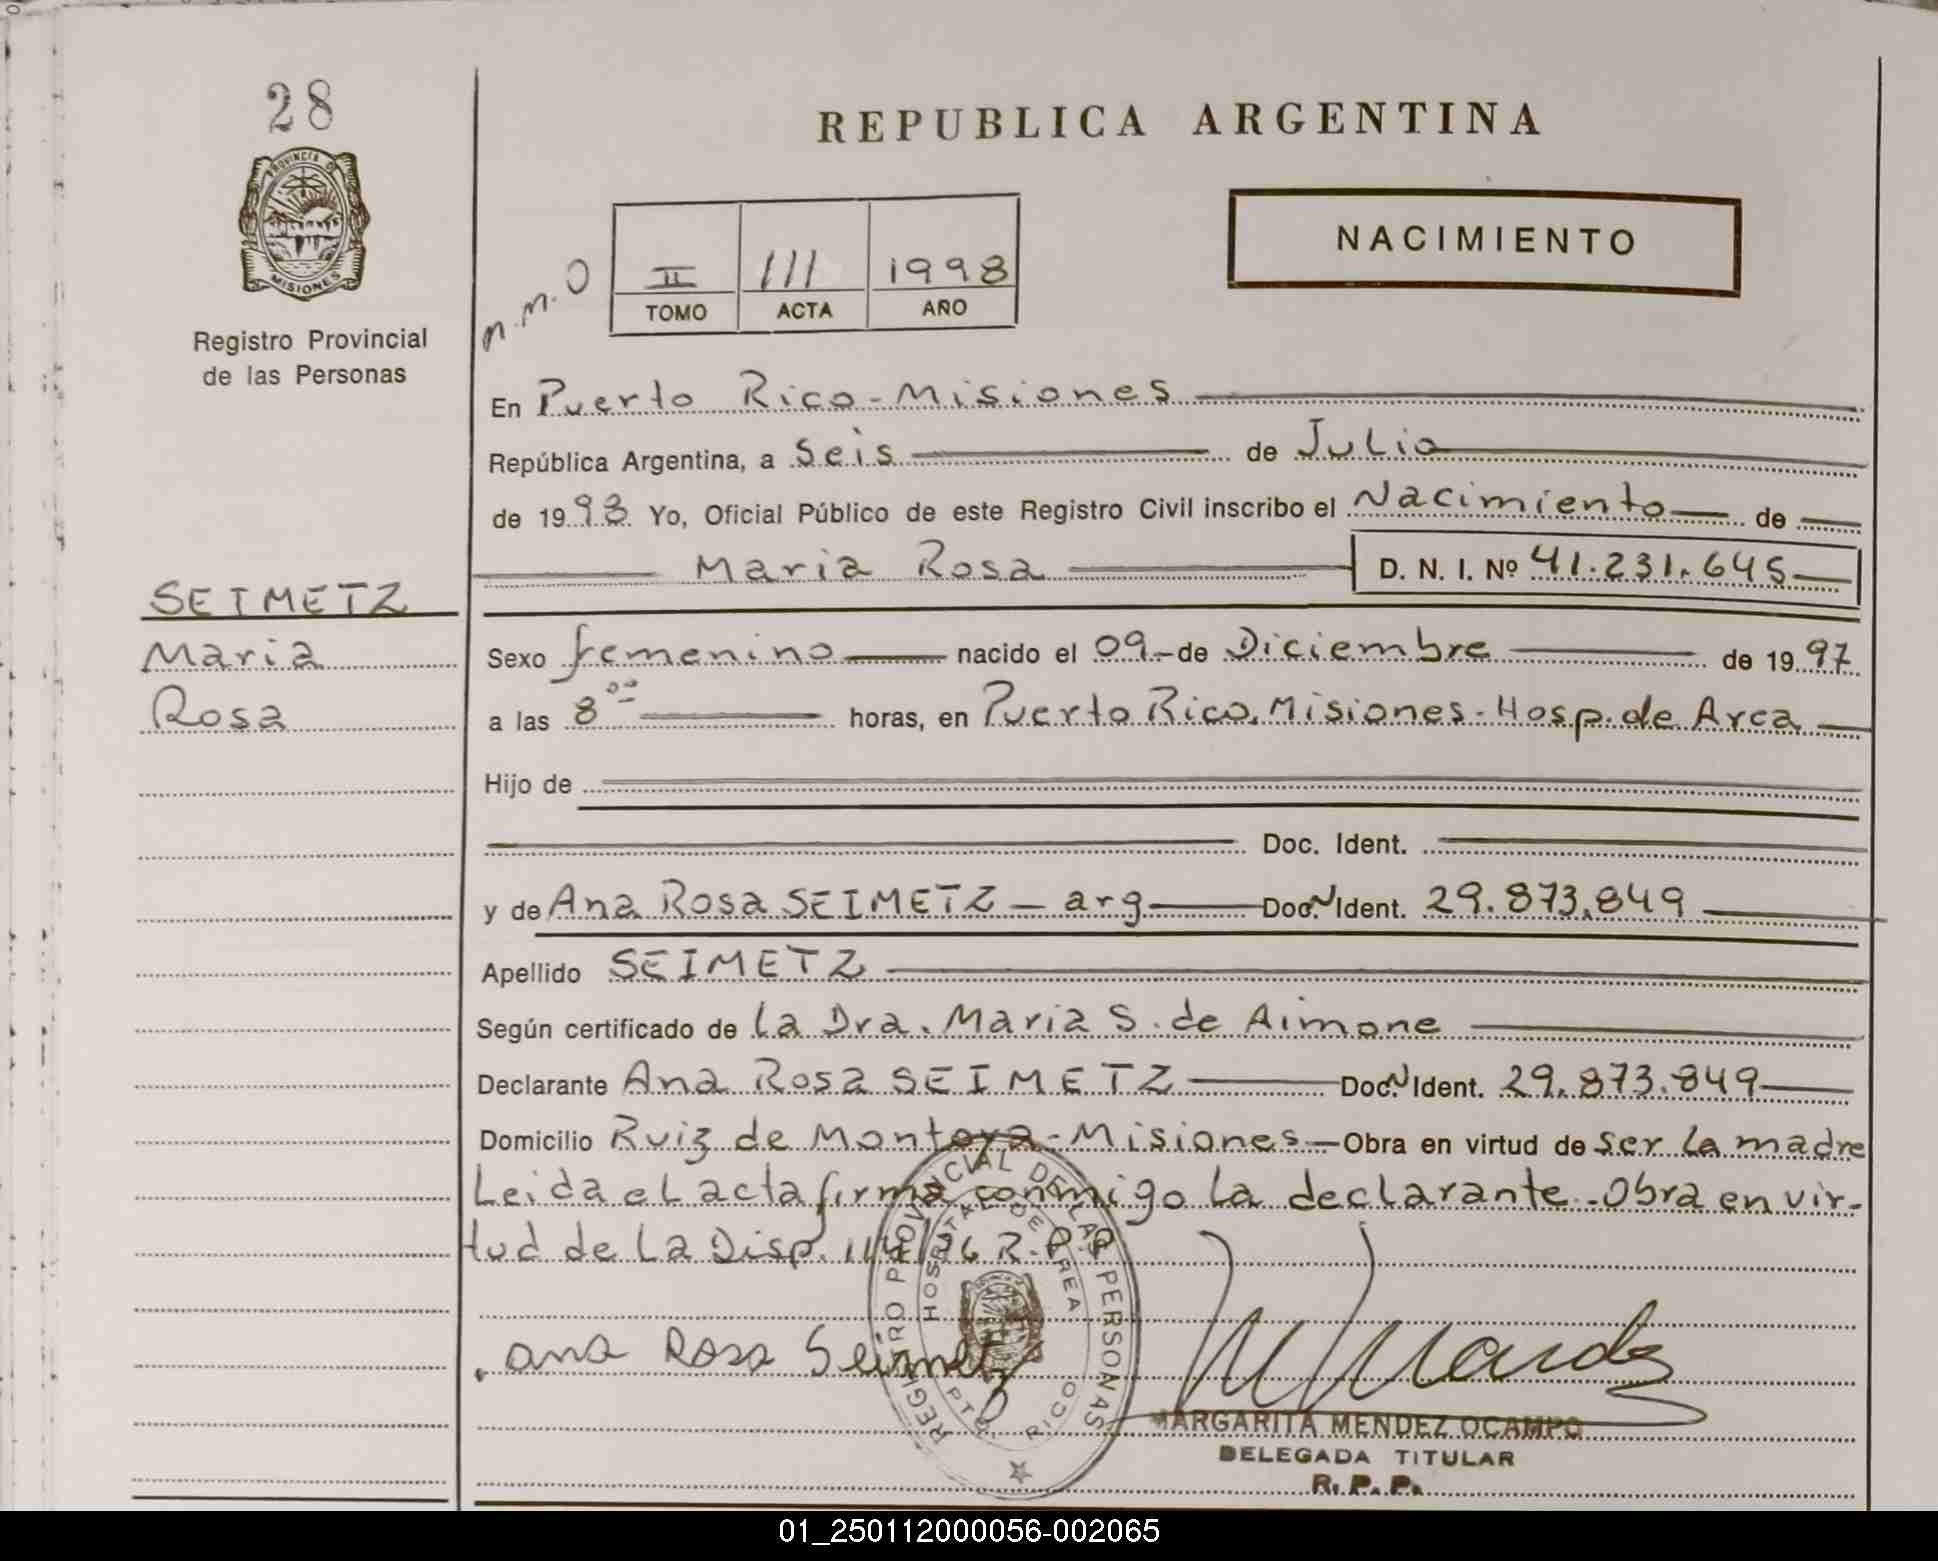 28
REPUBLICA ARGENTINA
PROVINCIA D
MISIONES
NACIMIENTO
n.m.o
II 111 1998
TOMO ACTA AÑO
Registro Provincial
de las Personas
En Puerto Rico-Misiones
República Argentina, a Seis de Julio
de 1998 Yo, Oficial Público de este Registro Civil inscribo el Nacimiento de
Maria Rosa D. N. I. Nº 41.231.645
SEIMETZ
Maria
Rosa
Sexo femenino nacido el 09 de Diciembre de 1997
a las 8 00 horas, en Puerto Rico, Misiones-Hosp. de Area
Hijo de
Doc. Ident.
y de Ana Rosa SEIMETZ - arg Doc. N Ident. 29.873.849
Apellido SEIMETZ
Según certificado de La Dra. Maria S. de Aimone
Declarante Ana Rosa SEIMETZ Doc. N Ident. 29.873.849
Domicilio Ruiz de Montoya-Misiones Obra en virtud de ser la madre
Leida el acta firma conmigo la declarante-Obra en vir-
tud de La Disp. R.P.P
REGISTRO PROVINCIAL DE LAS PERSONAS
HOSPITAL DE AREA
PTO. RICO
Ana Rosa Seimetz
MARGARITA MENDEZ OCAMPO
DELEGADA TITULAR
R. P. P.
01_250112000056-002065